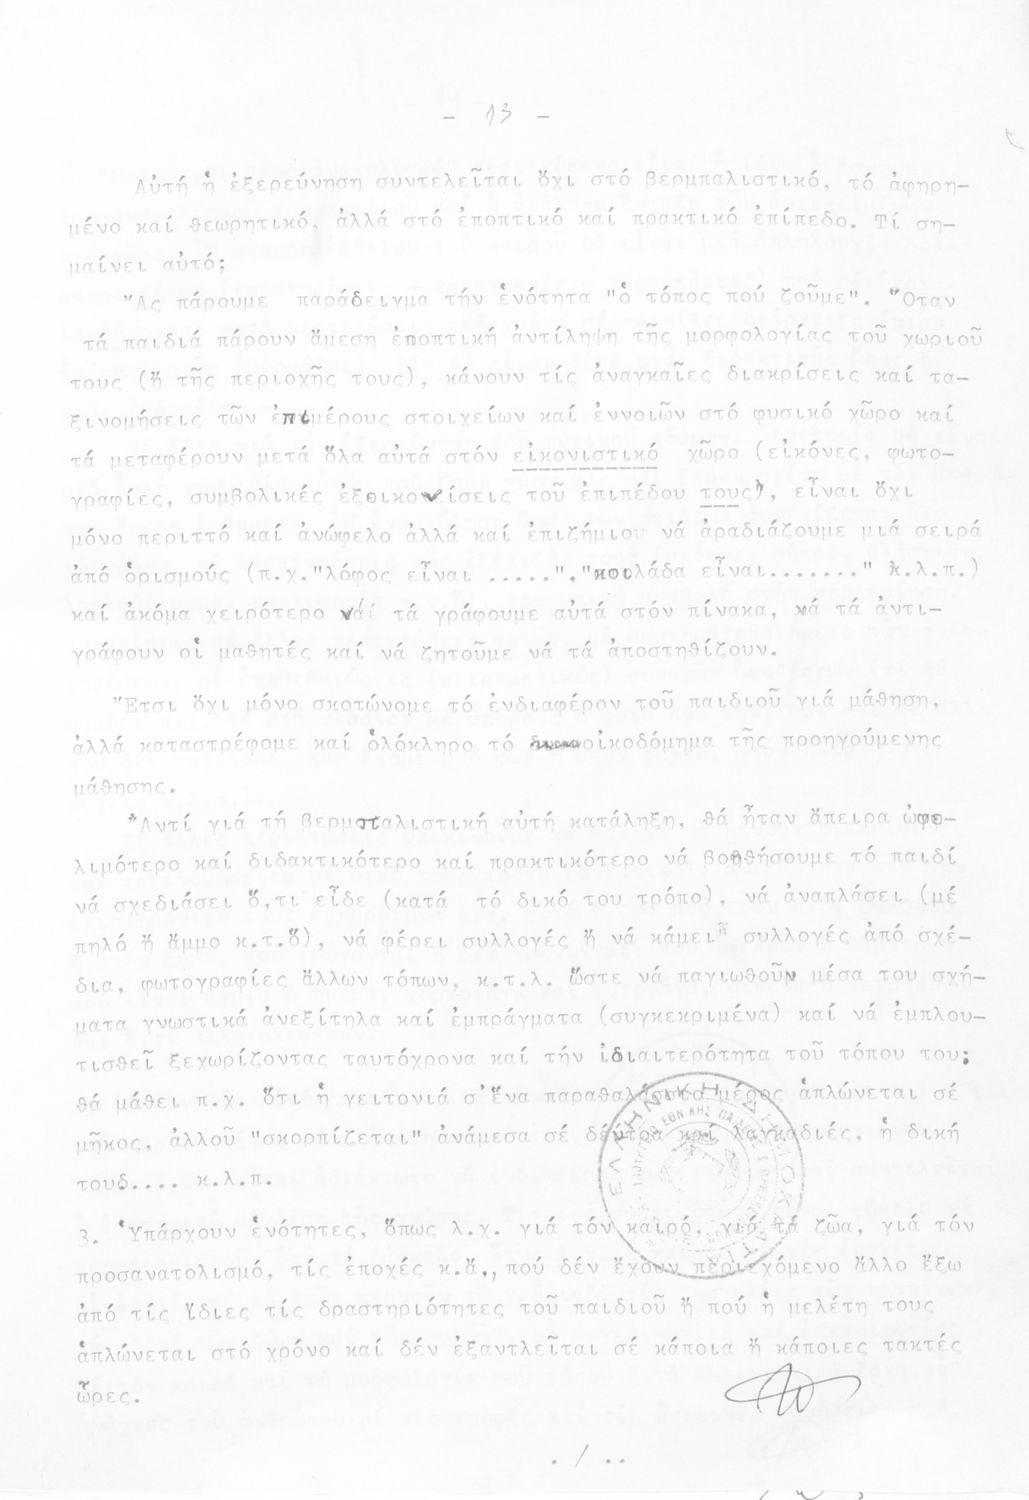 - 13 -
Αὐτή ἡ ἐξερεύνηση συντελεῖται ὄχι στό βερμπαλιστικό, τό ἀφηρη-
μένο καί θεωρητικό, ἀλλά στό ἐποπτικό καί πρακτικό ἐπίπεδο. Τί ση-
μαίνει αὐτό;
Ἄς πάρουμε παράδειγμα τήν ἑνότητα "ὁ τόπος πού ζοῦμε". Ὅταν
τά παιδιά πάρουν ἄμεση ἐποπτική ἀντίληψη τῆς μορφολογίας τοῦ χωριοῦ
τους (ἤ τῆς περιοχῆς τους), κάνουν τίς ἀναγκαῖες διακρίσεις καί τα-
ξινομήσεις τῶν ἐπιμέρους στοιχείων καί ἐννοιῶν στό φυσικό χῶρο καί
τά μεταφέρουν μετά ὅλα αὐτά στόν εἰκονιστικό χῶρο (εἰκόνες, φωτο-
γραφίες, συμβολικές ἐξεικονίσεις τοῦ ἐπιπέδου τους), εἶναι ὄχι
μόνο περιττό καί ἀνώφελο ἀλλά καί ἐπιζήμιο νά ἀραδιάζουμε μιά σειρά
ἀπό ὁρισμούς (π.χ."λόφος εἶναι .....","κοιλάδα εἶναι........" κ.λ.π.)
καί ἀκόμα χειρότερο νά τά γράφουμε αὐτά στόν πίνακα, νά τά ἀντι-
γράφουν οἱ μαθητές καί νά ζητοῦμε νά τά ἀποστηθίζουν.
Ἔτσι ὄχι μόνο σκοτώνομε τό ἐνδιαφέρον τοῦ παιδιοῦ γιά μάθηση,
ἀλλά καταστρέφομε καί ὁλόκληρο τό οἰκοδόμημα τῆς προηγούμενης
μάθησης.
Ἀντί γιά τή βερμπαλιστική αὐτή κατάληξη, θά ἦταν ἄπειρα ὠφε-
λιμότερο καί διδακτικότερο καί πρακτικότερο νά βοηθήσουμε τό παιδί
νά σχεδιάσει ὅ,τι εἶδε (κατά τό δικό του τρόπο), νά ἀναπλάσει (μέ
πηλό ἤ ἄμμο κ.τ.ὅ), νά φέρει συλλογές ἤ νά κάμει συλλογές ἀπό σχέ-
δια, φωτογραφίες ἄλλων τόπων, κ.τ.λ. ὥστε νά παγιωθοῦν μέσα του σχή-
ματα γνωστικά ἀνεξίτηλα καί ἐμπράγματα (συγκεκριμένα) καί νά ἐμπλου-
τισθεῖ ξεχωρίζοντας ταυτόχρονα καί τήν ἰδιαιτερότητα τοῦ τόπου του:
θά μάθει π.χ. ὅτι ἡ γειτονιά σ'ἕνα παραθαλάσσιο μέρος ἁπλώνεται σέ
μῆκος, ἀλλοῦ "σκορπίζεται" ἀνάμεσα σέ δέντρα καί λαγκαδιές, ἡ δική
τουδ.... κ.λ.π.
ΕΛΛΗΝΙΚΗ ΔΗΜΟΚΡΑΤΙΑ
3. Ὑπάρχουν ἑνότητες, ὅπως λ.χ. γιά τόν καιρό, γιά τά ζῶα, γιά τόν
προσανατολισμό, τίς ἐποχές κ.ἄ., πού δέν ἔχουν περιεχόμενο ἄλλο ἔξω
ἀπό τίς ἴδιες τίς δραστηριότητες τοῦ παιδιοῦ ἤ πού ἡ μελέτη τους
ἁπλώνεται στό χρόνο καί δέν ἐξαντλεῖται σέ κάποια ἤ κάποιες τακτές
ὧρες.
. / ..